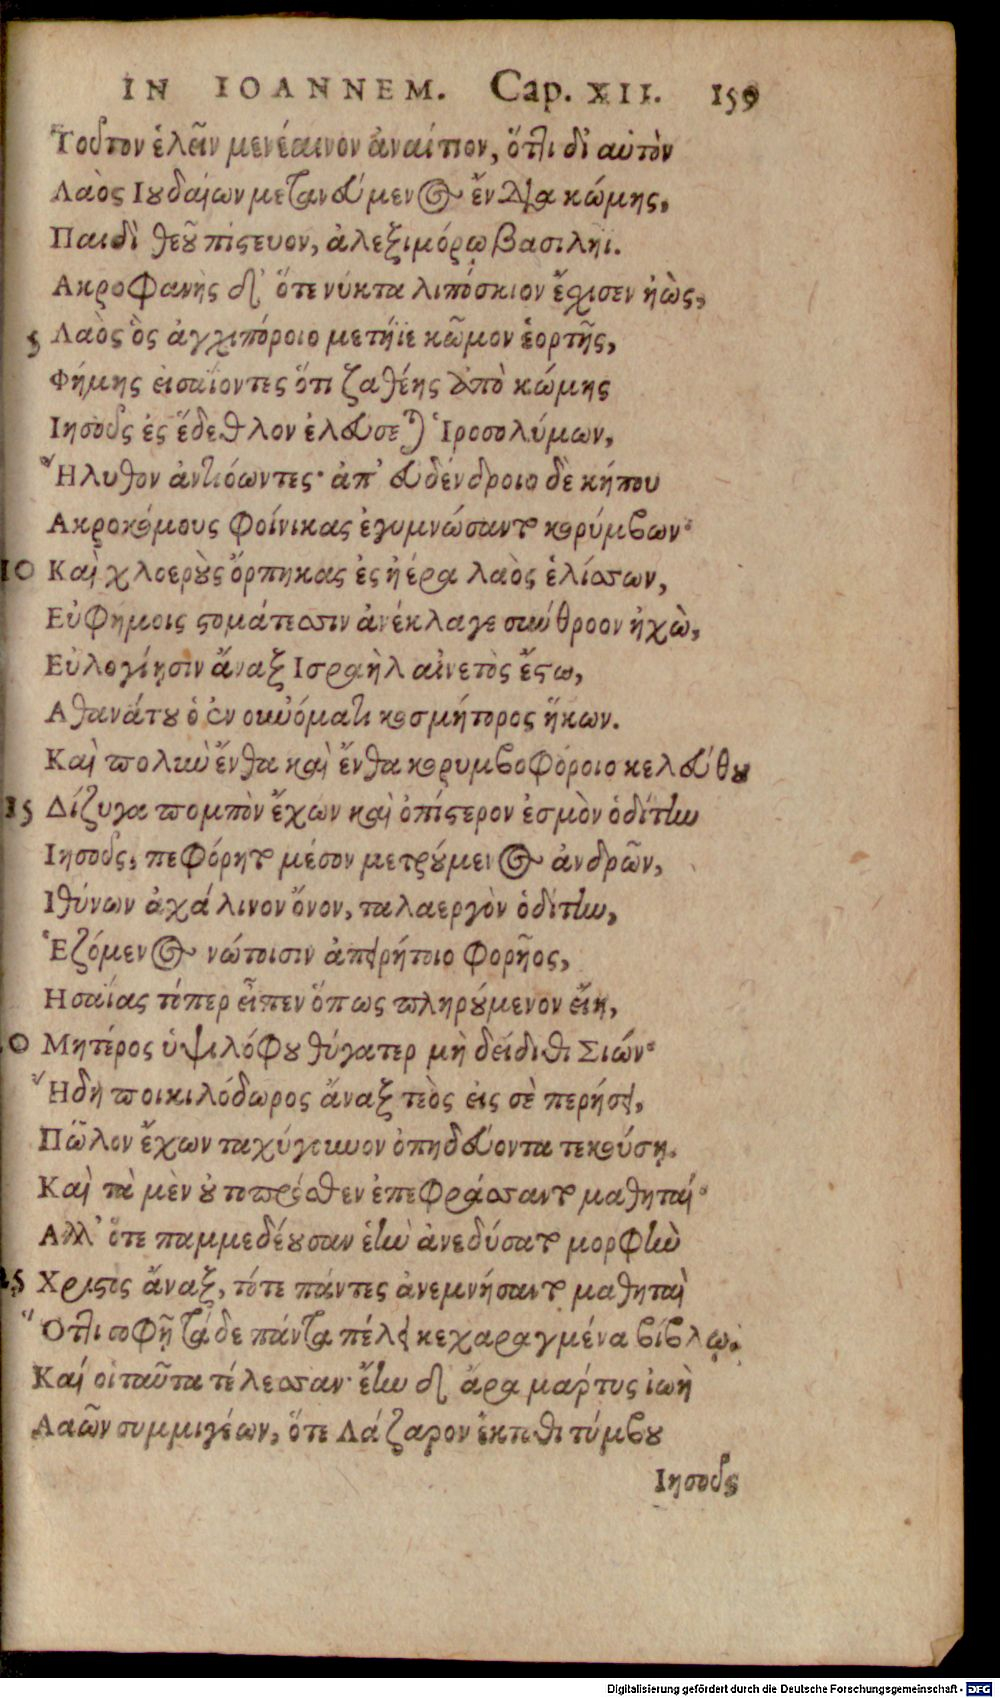 IN IOANNEM. Cap. XII. 159
Τοῦτον ἑλεῖν μενέαινον ἀναίτιον, ὅττι δι' αὐτὸν
Λαὸς Ιουδαίων μετανεύμενος ἔνδια κώμης,
Παιδὶ θεοῦ πίςευον, ἀλεξιμόρῳ βασιλῆϊ.
Ακροφανὴς δ' ὅτε νύκτα λιπόσκιον ἔσχισεν ἠὼς,
5 Λαὸς ὃς ἀγχιπόροιο μετήϊε κῶμον ἑορτῆς,
Φήμης εἰσαΐοντες ὅτι ζαθέης ἀπὸ κώμης
Ιησοῦς ἐς ἔδεθλον ἐλεύσεται Ἱροσολύμων,
Ἤλυθον ἀντιόωντες· ἀπ' εὐδένδροιο δὲ κήπου
Ακροκόμους φοίνικας ἐγυμνώσαντο κορύμβων·
10 Καὶ χλοεροὺς ὄρπηκας ἐς ἠέρα λαὸς ἑλίσσων,
Εὐφήμοις ςομάτεσσιν ἀνέκλαγε σύνθροον ἠχὼ,
Εὐλογίῃσιν ἄναξ Ισραὴλ αἰνετὸς ἔςω,
Αθανάτου ὁ ἐν οὐνόματι κοσμήτορος ἥκων.
Καὶ πολὺν ἔνθα καὶ ἔνθα κορυμβοφόροιο κελεύθου
15 Δίζυγα πομπὸν ἔχων καὶ ὀπίςερον ἑσμὸν ὁδίτην
Ιησοῦς, πεφόρητο μέσον μετρούμενος ἀνδρῶν,
Ιθύνων ἀχάλινον ὄνον, ταλαεργὸν ὁδίτην,
Ἑζόμενος νώτοισιν ἀπειρήτοιο φορῆος,
Ησαΐας τόπερ εἶπεν ὅπως πληρούμενον εἴη,
0 Μητέρος ὑψιλόφου θύγατερ μὴ δείδιθι Σιών·
Ἤδη ποικιλόδωρος ἄναξ τεὸς εἰς σὲ περήσει,
Πῶλον ἔχων ταχύγουνον ὀπηδεύοντα τεκούσῃ.
Καὶ τὰ μὲν οὐ τοπρόσθεν ἐπεφράσσαντο μαθηταί·
Αλλ' ὅτε παμμεδέουσαν ἑὴν ἀνεδύσατο μορφὴν
25 Χριςὸς ἄναξ, τότε πάντες ἀνεμνήσαντο μαθηταὶ
Ὅττι σοφῇ τάδε πάντα πέλει κεχαραγμένα βίβλῳ.
Καί οἱ ταῦτα τέλεσσαν· ἔην δ' ἄρα μάρτυς ἰωὴ
Λαῶν συμμιγέων, ὅτε Λάζαρον ἔκτοθι τύμβου
Ιησοῦς
Digitalisierung gefördert durch die Deutsche Forschungsgemeinschaft - DFG